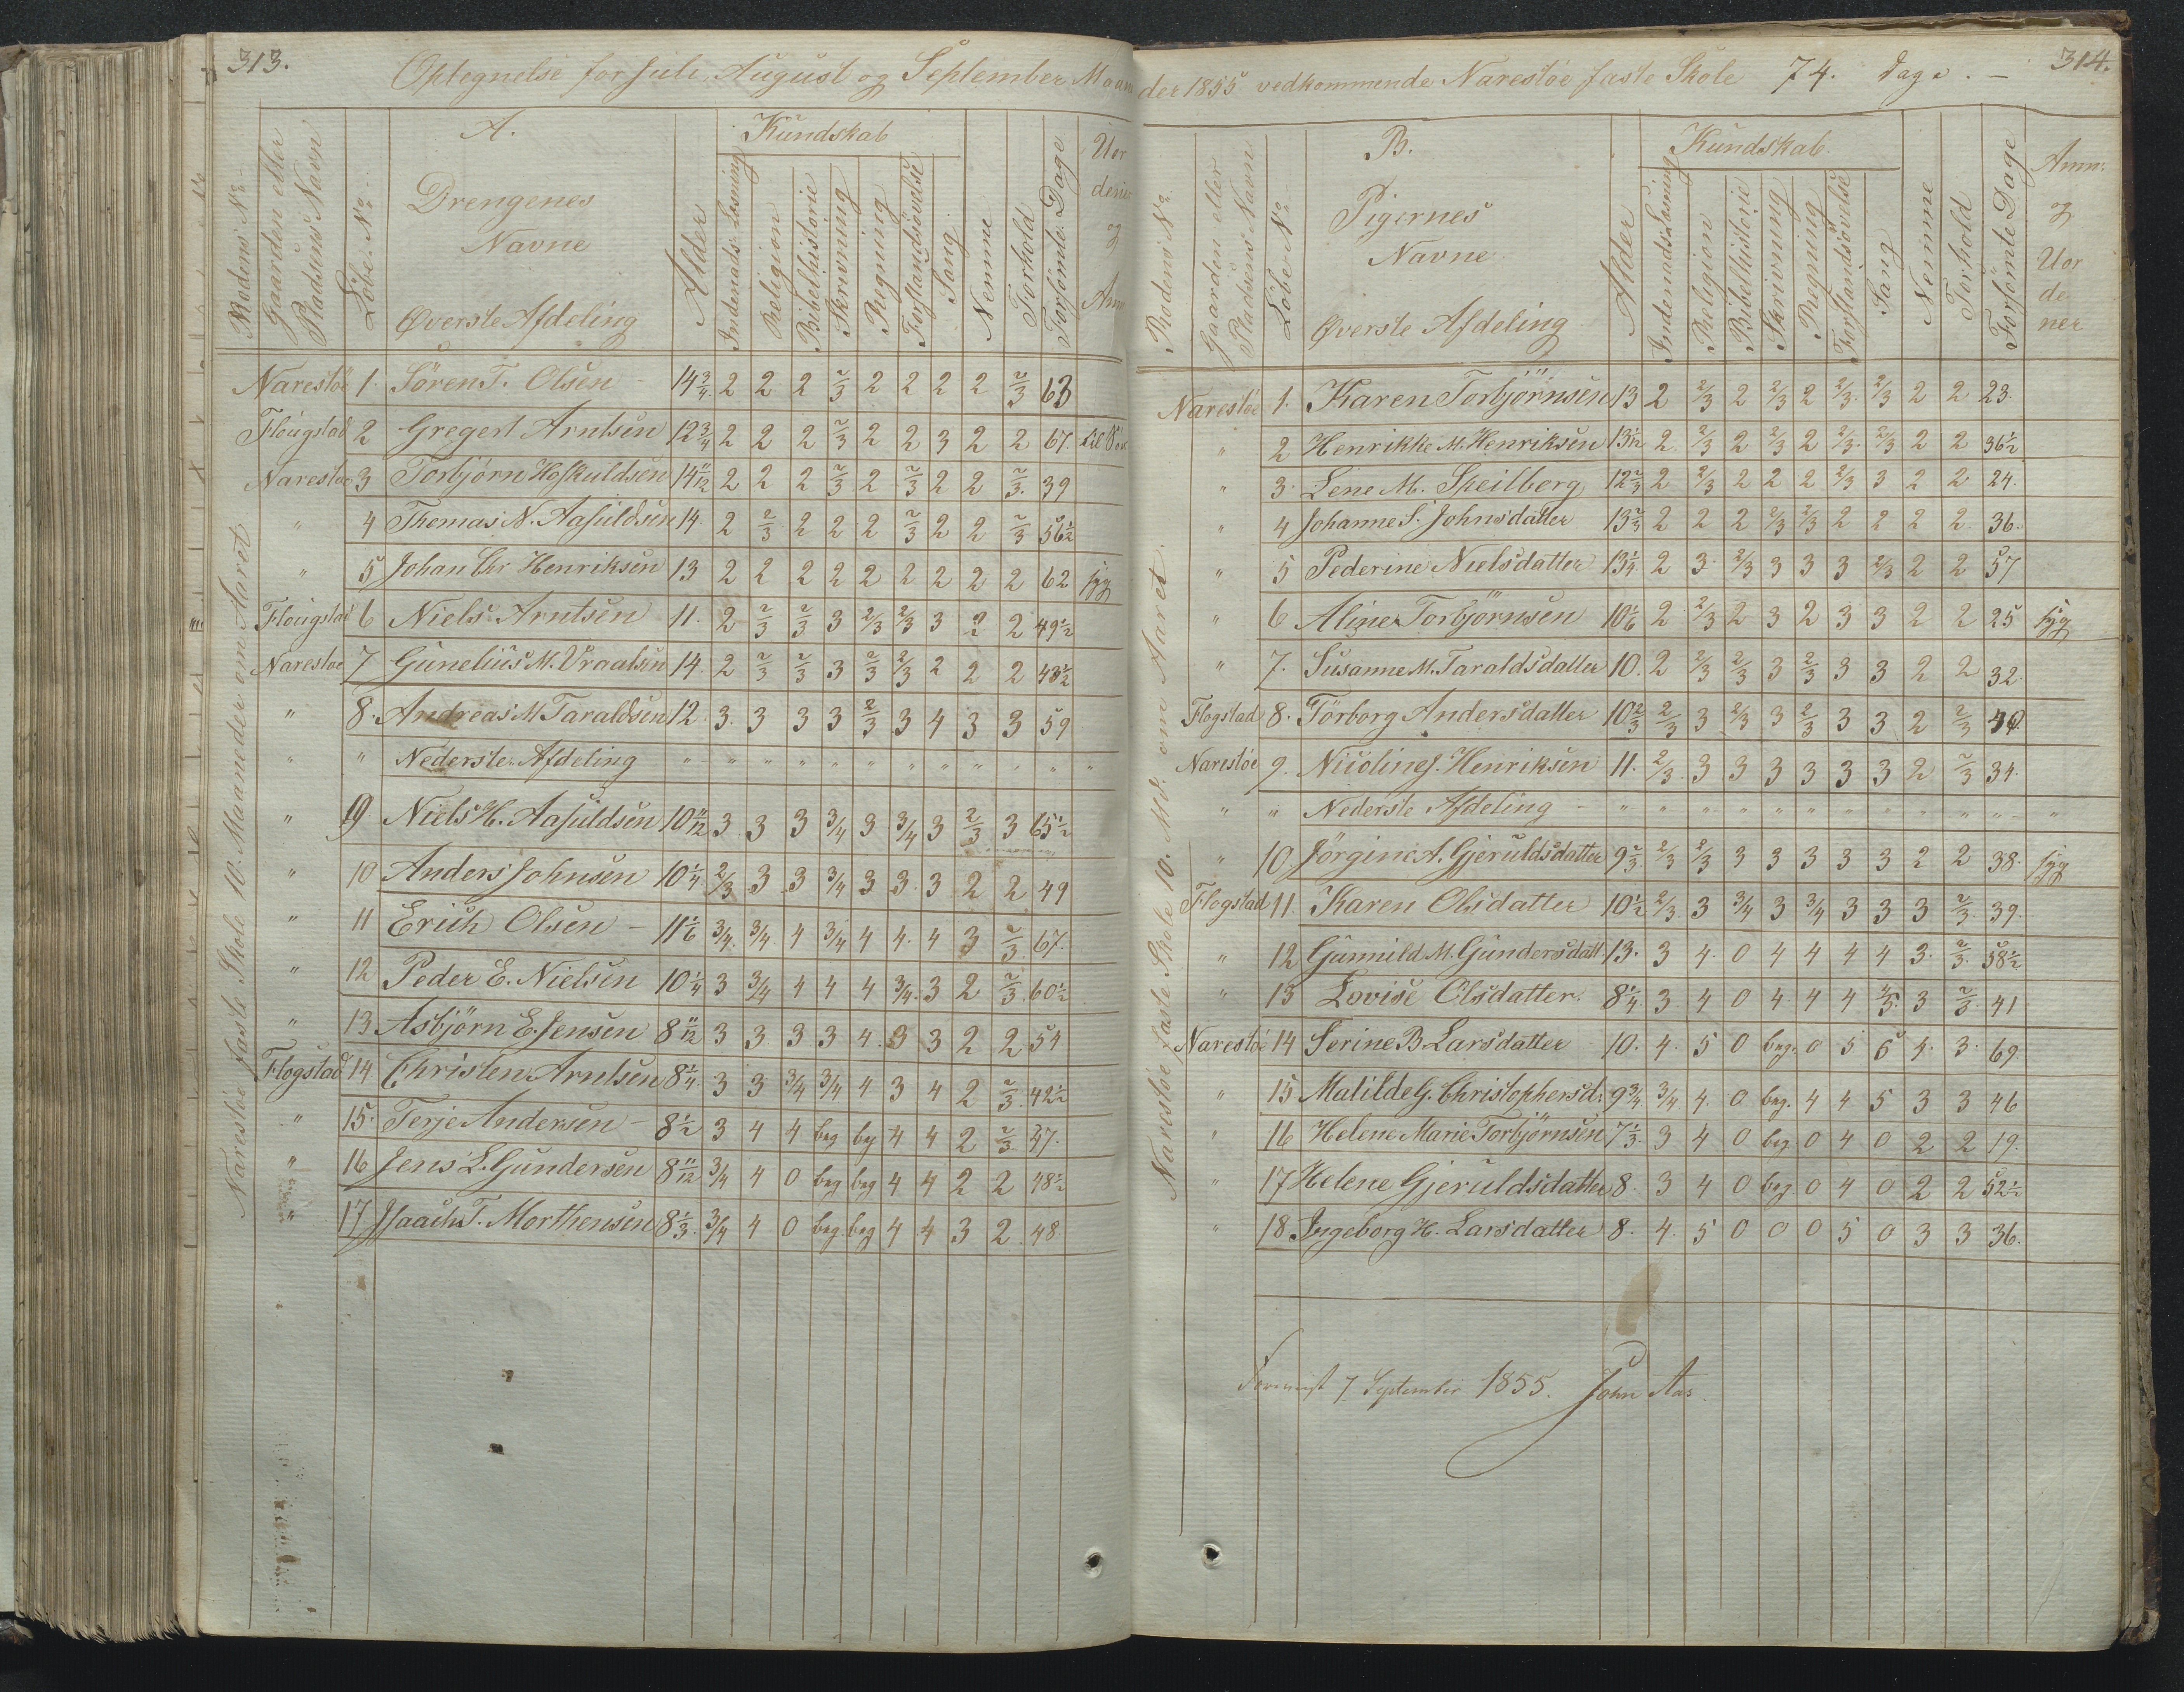 313.
Optegnelse for Juli, August og September Maan
A.
Kundskab
Rodens No
Gaarden eller Pladsens Navn
Löbe No
Drengenes
Navne
Øverste Afdeling
Alder
Indenads Læsning
Religion
Bibelhistorie
Skrivning
Regning
Forstandsövelse
Sang
Nemme
Forhold
Forsömte Dage
Narestöe faste Skole 10. Maaneder om Aaret
Narestöe 1. Sören T. Olsen 14 3/4 2 2 2 2/3 2 2 2 2 2/3 63
Flougstad 2 Gregert Arntsen 12 3/4 2 2 2 2/3 2 2 3 2 2 67.
Narestöe 3 Torbjörn Hofkuldsen 14 11/12 2 2 2 2/3 2 2/3 2 2 2/3. 39
" 4 Themas N. Aasuldsen 14. 2 2/3 2 2 2 2/3 2 2 2/3 56 1/2
" 5 Johan Chr Henriksen 13 2 2 2 2 2 2 2 2 2 62 syg
Flougstad 6 Niels Arntsen 11. 2 2/3 2/3 3 2/3 2/3 3 2 2 49 1/2
Narestoe 7 Gunelius M. Vraalsen 14. 2 2/3 2/3 3 2/3 2/3 2 2 2 43 1/2
" 8. Andreas M. Taraldsen 12. 3. 3 3 3 2/3 3 4 3 3 59
" " Nederste Afdeling " " " " " " " " " " "
" 9 Niels H. Aasuldsen 10 11/12 3 3 3 3/4 3 3/4 3 2/3 3 65 1/2
" 10 Anders Johnsen 10 1/4 2/3 3 3 3/4 3 3. 3 2 2 49
" 11 Erich Olsen 11 1/6 3/4. 3/4. 4 3/4 4 4. 4 3 2/3. 67.
" 12 Peder E. Nielsen 10 1/4 3 3/4 4 4 4 3/4. 3 2 2/3. 60 1/2
" 13. Asbjörn E. Jensen 8 11/12 3 3 3 3 4. 3 3 2 2 54
Flogstad 14. Christen Arntsen 8 1/4. 3 3 3/4 3/4 4 3 4 2 2/3. 42 1/2
" 15. Terje Andersen 8 1/2 3 4 4 beg beg 4 4 2 2/3. 47.
" 16 Jens L. Gundersen 8 11/12 3/4 4 0 beg beg 4 4 2 2 48 1/2
" 17 Isaach T. Morthensen 8 1/3. 3/4 4 0 beg. beg 4 4 3 2 48.
314.
der 1855 vedkommende Narestöe faste Skole 74. Dage. –
B.
Kundskab.
Rodens No
Gaarden eller Pladsens Navn
Löbe No
Pigernes
Navne
Øverste Afdeling
Alder
Indenads Læsning
Religion
Bibelhistorie
Skrivning
Regning
Forstandsövelse
Sang
Nemme
Forhold
Forsömte Dage
Anm:
og
Vor
de
ner
Narestöe faste Skole 10. Md. om Aaret.
Narestöe 1. Karen Torbjörnsen 13 2 2/3 2 2/3 2 2/3. 2/3 2 2 23.
" 2 Henrikke M. Henriksen 13 1/12 2 2/3 2 2/3 2 2/3. 2/3 2 2 36 1/2
" 3. Lene M. Skeilberg 12 2/3 2 2/3 2 2 2 2/3 3 2 2 24.
" 4 Johanne S. Johnsdatter 13 2/3 2 2 2 2/3 2/3 2 2 2 2. 36.
" 5 Pederine Nielsdatter 13 1/4 2 3. 2/3 3 3 3 2/3 2 2 57
" 6 Aline Torbjörnsen 10 1/6 2 2/3 2 3 2 3 3 2 2 25 syg
" 7. Susanne M. Taraldsdatter 10. 2 2/3 2/3 3 2/3 3 3 2 2 32.
Flogstad 8. Torborg Andersdatter 10 2/3 2/3 3 2/3 3 2/3 3 3 2 2/3
Narestöe 9. Nicoline J. Henriksen 11. 2/3. 3 3 3 3 3 3 2 2/3 34.
" " Nederste Afdeling " " " " " " " " " " "
" 10 Jörgine A. Gjeruldsdatter 9 2/3. 2/3 2/3 3 3 3 3 3 2 2 38. syg
Flogstad 11. Karen Olsdatter 10 1/2 2/3 3 3/4 3 3/4 3 3 3 2/3. 39.
" 12 Gunnild M. Gundersdatt. 13. 3 4. 0 4 4 4 4 3. 2/3. 58 1/2
" 13 Lovise Olsdatter. 8 1/4. 3. 4 0 4. 4 4 4/5. 3 2/3. 41
Narestöe 14 Serine B Larsdatter 10. 4. 5 0 beg. 0 5 5 4. 3. 69.
" 15 Matilde G. Christophersd: 9 3/4 3/4 4. 0 beg. 4 4 5 3 3 46
" 16 Helene Marie Torbjörnsen 7 1/3. 3 4 0 beg. 0 4 0 2 2 19.
" 17 Helene Gjeruldsdatter 8. 3 4 0 beg. 0 4 0 2 2 52 1/2
" 18 Ingeborg H. Larsdatter 8. 4. 5 0 0 0 5 0 3 3 36.
7 September 1855. John Aas.